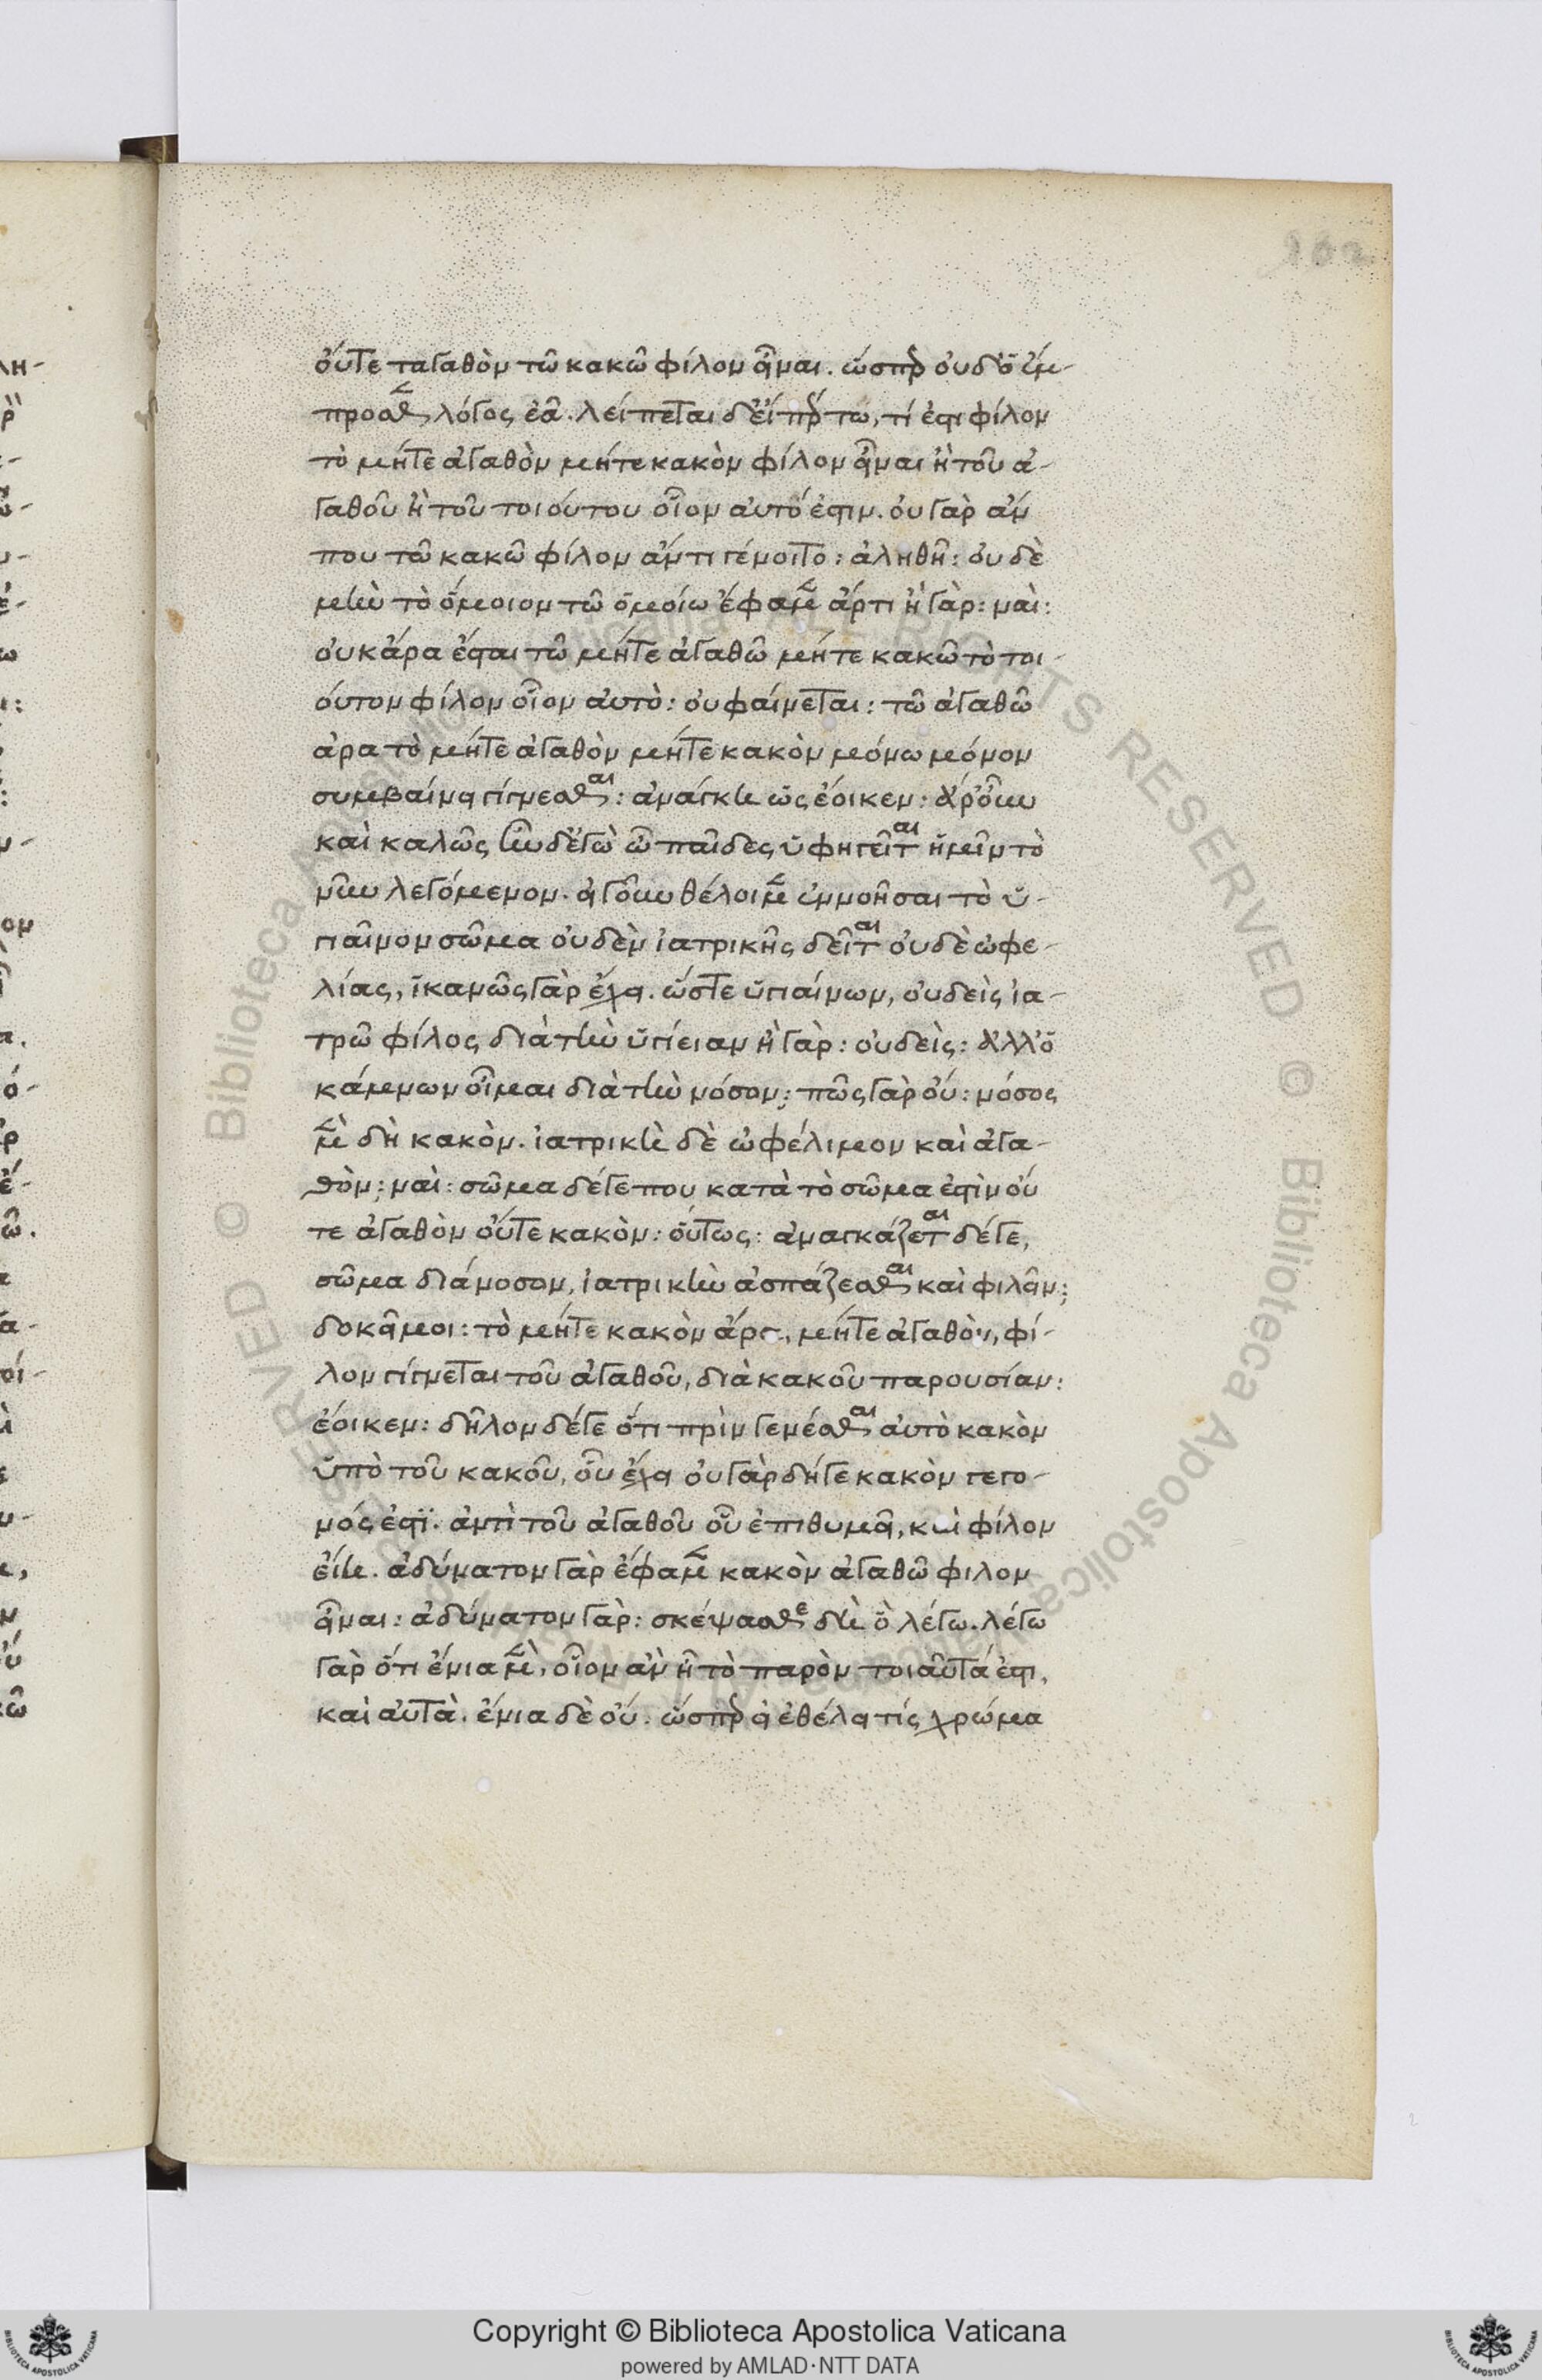 οὔτε ταγαθὸν τῶ κακῶ φίλον εἶναι. ὥσπερ οὐδ' ὁ ἔμ-
προσθεν λόγος ἐᾶ. λείπεται δ' εἴπέρ τω, τί ἐστι φίλον
τὸ μήτε ἀγαθὸν μήτε κακὸν φίλον εἶναι ἢ τοῦ ἀ-
γαθοῦ ἢ τοῦ τοιούτου οἷον αὐτό ἐστιν. οὐ γὰρ ἄν
που τῶ κακῶ φίλον ἄν τι γένοιτο: ἀληθῆ: οὐδὲ
μὴν τὸ ὅμοιον τῶ ὁμοίω ἔφαμεν ἄρτι ἢ γὰρ: ναὶ:
οὐκ ἄρα ἔσται τῶ μήτε ἀγαθῶ μήτε κακῶ τὸ τοι-
οῦτον φίλον οἷον αὐτὸ: οὐ φαίνεται: τῶ ἀγαθῶ
ἄρα τὸ μήτε ἀγαθὸν μήτε κακὸν μόνω μόνον
συμβαίνει γίγνεσθαι: ἀνάγκη ὡς ἔοικεν: ἆρ' οὖν
καὶ καλῶς ἦν δ' ἐγὼ ὦ παῖδες ὑφηγεῖται ἡμῖν τὸ
νῦν λεγόμενον. εἰ γοῦν θέλοιμεν ἐννοῆσαι τὸ ὑ-
γιαῖνον σῶμα οὐδὲν ἰατρικῆς δεῖται οὐδὲ ὠφε-
λίας, ἱκανῶς γὰρ ἔχει. ὥστε ὑγιαίνων, οὐδεὶς ἰα-
τρῶ φίλος διὰ τὴν ὑγίειαν ἢ γὰρ: οὐδεὶς: ἀλλ' ὁ
κάμνων οἶμαι διὰ τὴν νόσον; πῶς γὰρ οὔ: νόσος
μὲν δὴ κακὸν. ἰατρικὴ δὲ ὠφέλιμον καὶ ἀγα-
θὸν; ναὶ: σῶμα δέ γε που κατὰ τὸ σῶμα ἐστὶν οὔ
τε ἀγαθὸν οὔτε κακὸν: οὕτως: ἀναγκάζεται δέ γε,
σῶμα διά νοσον, ἰατρικὴν ἀσπάζεσθαι καὶ φιλεῖν;
δοκεῖ μοι: τὸ μήτε κακὸν ἄρα, μήτε ἀγαθὸν, φί-
λον γίγνεται τοῦ ἀγαθοῦ, διὰ κακοῦ παρουσίαν:
ἔοικεν: δῆλον δέ γε ὅτι πρὶν γενέσθαι αὐτὸ κακὸν
ὑπὸ τοῦ κακοῦ, οὗ ἔχει οὐ γὰρ δή γε κακὸν γεγο-
νός ἐστϊ. ἀντὶ τοῦ ἀγαθοῦ οὗ ἐπιθυμεῖ, καὶ φίλον
εἴη. ἀδύνατον γὰρ ἔφαμεν κακὸν ἀγαθῶ φιλον
εἶναι: ἀδύνατον γὰρ: σκέψασθε δὴ ὃ λέγω. λέγω
γὰρ ὅτι ἔνια μὲν, οἷον ἂν ἦ τὸ παρὸν τοιαῦτά ἐστι,
καὶ αὐτὰ. ἔνια δὲ οὔ. ὥσπερ εἰ ἐθέλει τίς χρώμα
Copyright © Biblioteca Apostolica Vaticana
powered by AMLAD·NTT DATA